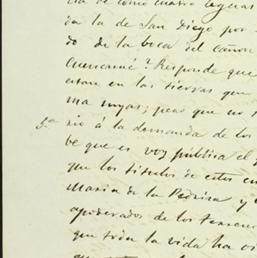 cia de como cuatro leguas
da la de San Diego por
do de la boca del cañon
Cuercamé? Responde que
estan en las tierras que
ma suyas; pero que no
3ª rio á la demanda de los
be que es voz pública el
que los títulos de estos
Maria de la
apoderados de los terrenos
que toda la vida ha